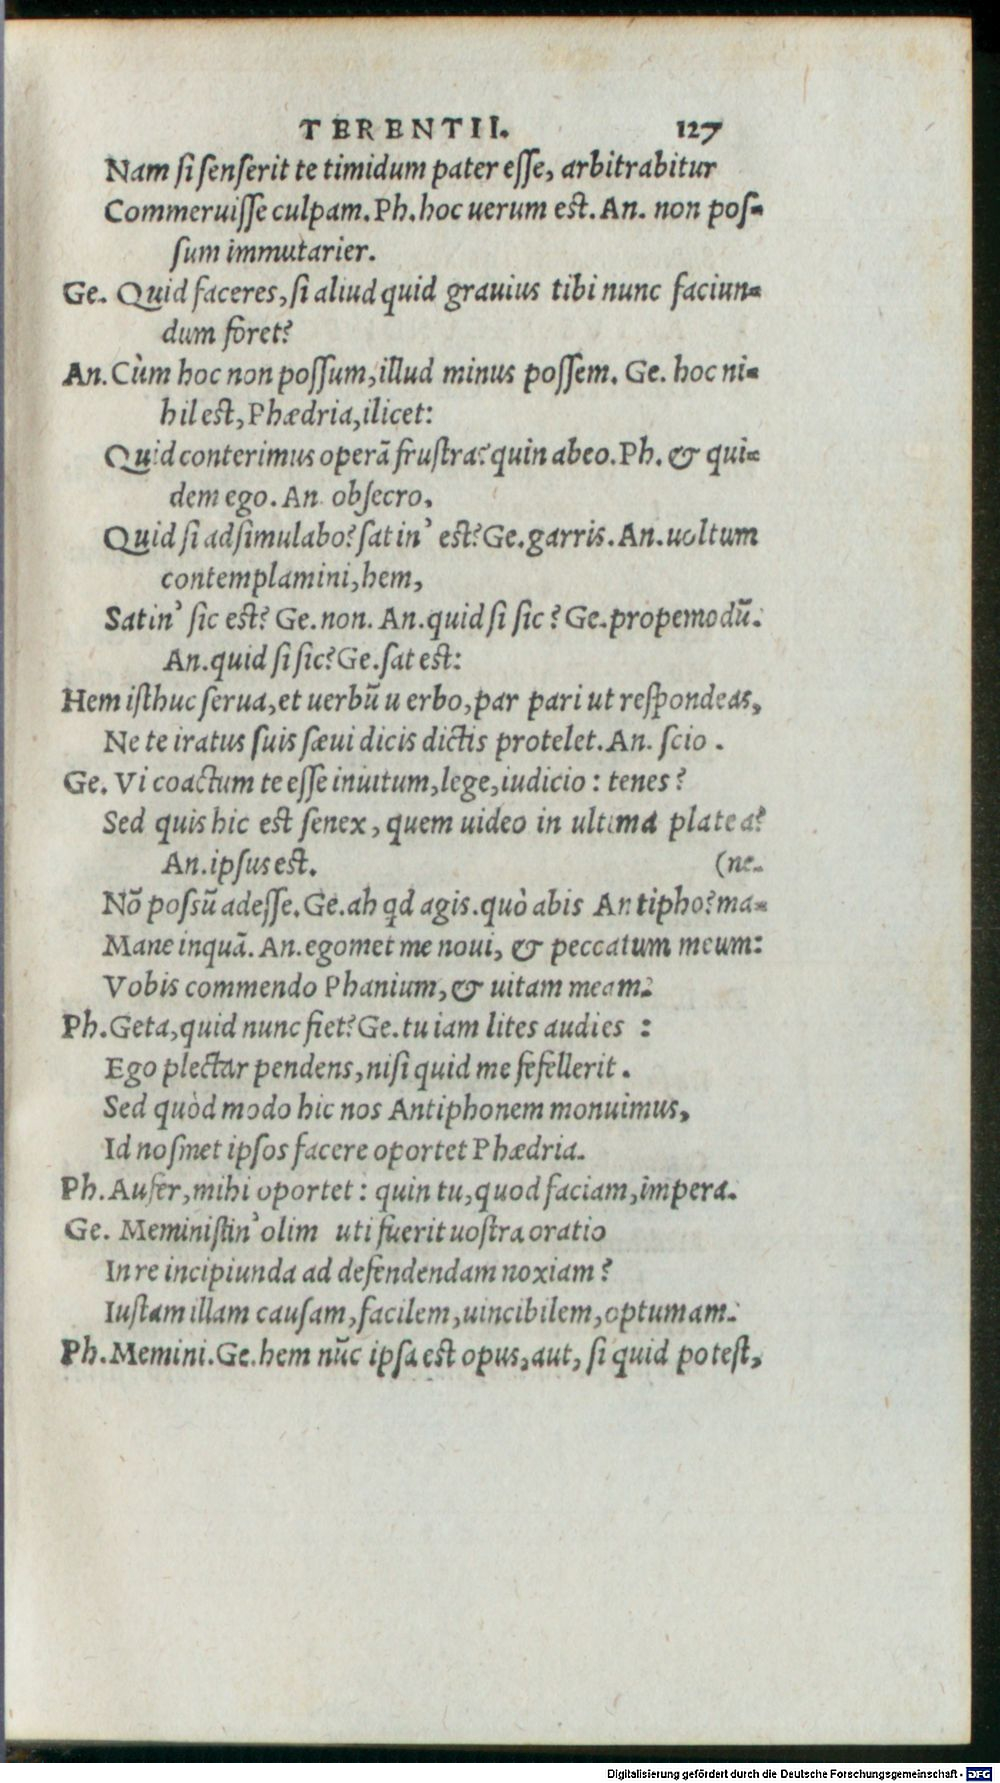 TERENTII. 127
Nam si senserit te timidum pater esse, arbitrabitur
Commeruisse culpam. Ph. hoc uerum est. An. non pos-
sum immutarier.
Ge. Quid faceres, si aliud quid grauius tibi nunc faciun-
dum foret?
An. Cùm hoc non possum, illud minus possem. Ge. hoc ni-
hil est, Phædria, ilicet:
Quid conterimus operã frustra? quin abeo. Ph. & qui-
dem ego. An. obsecro,
Quid si adsimulabo? satin' est? Ge. garris. An. uoltum
contemplamini, hem,
Satin' sic est? Ge. non. An. quid si sic? Ge. propemodũ.
An. quid si sic? Ge. sat est:
Hem isthuc serua, et uerbũ uerbo, par pari ut respondeas,
Ne te iratus suis sæuidicis dictis protelet. An. scio.
Ge. Vi coactum te esse inuitum, lege, iudicio: tenes?
Sed quis hic est senex, quem uideo in ultima platea?
An. ipsus est. (ne.
Nõ possũ adesse. Ge. ah qd agis. quò abis Antipho? ma-
Mane inquã. An. egomet me noui, & peccatum meum:
Vobis commendo Phanium, & uitam meam.
Ph. Geta, quid nunc fiet? Ge. tu iam lites audies:
Ego plectar pendens, nisi quid me fefellerit.
Sed quòd modo hic nos Antiphonem monuimus,
Id nosmet ipsos facere oportet Phædria.
Ph. Aufer, mihi oportet: quin tu, quod faciam, impera.
Ge. Meministin' olim uti fuerit uostra oratio
In re incipiunda ad defendendam noxiam?
Iustam illam causam, facilem, uincibilem, optumam.
Ph. Memini. Ge. hem nũc ipsa est opus, aut, si quid potest,
Digitalisierung gefördert durch die Deutsche Forschungsgemeinschaft - DFG